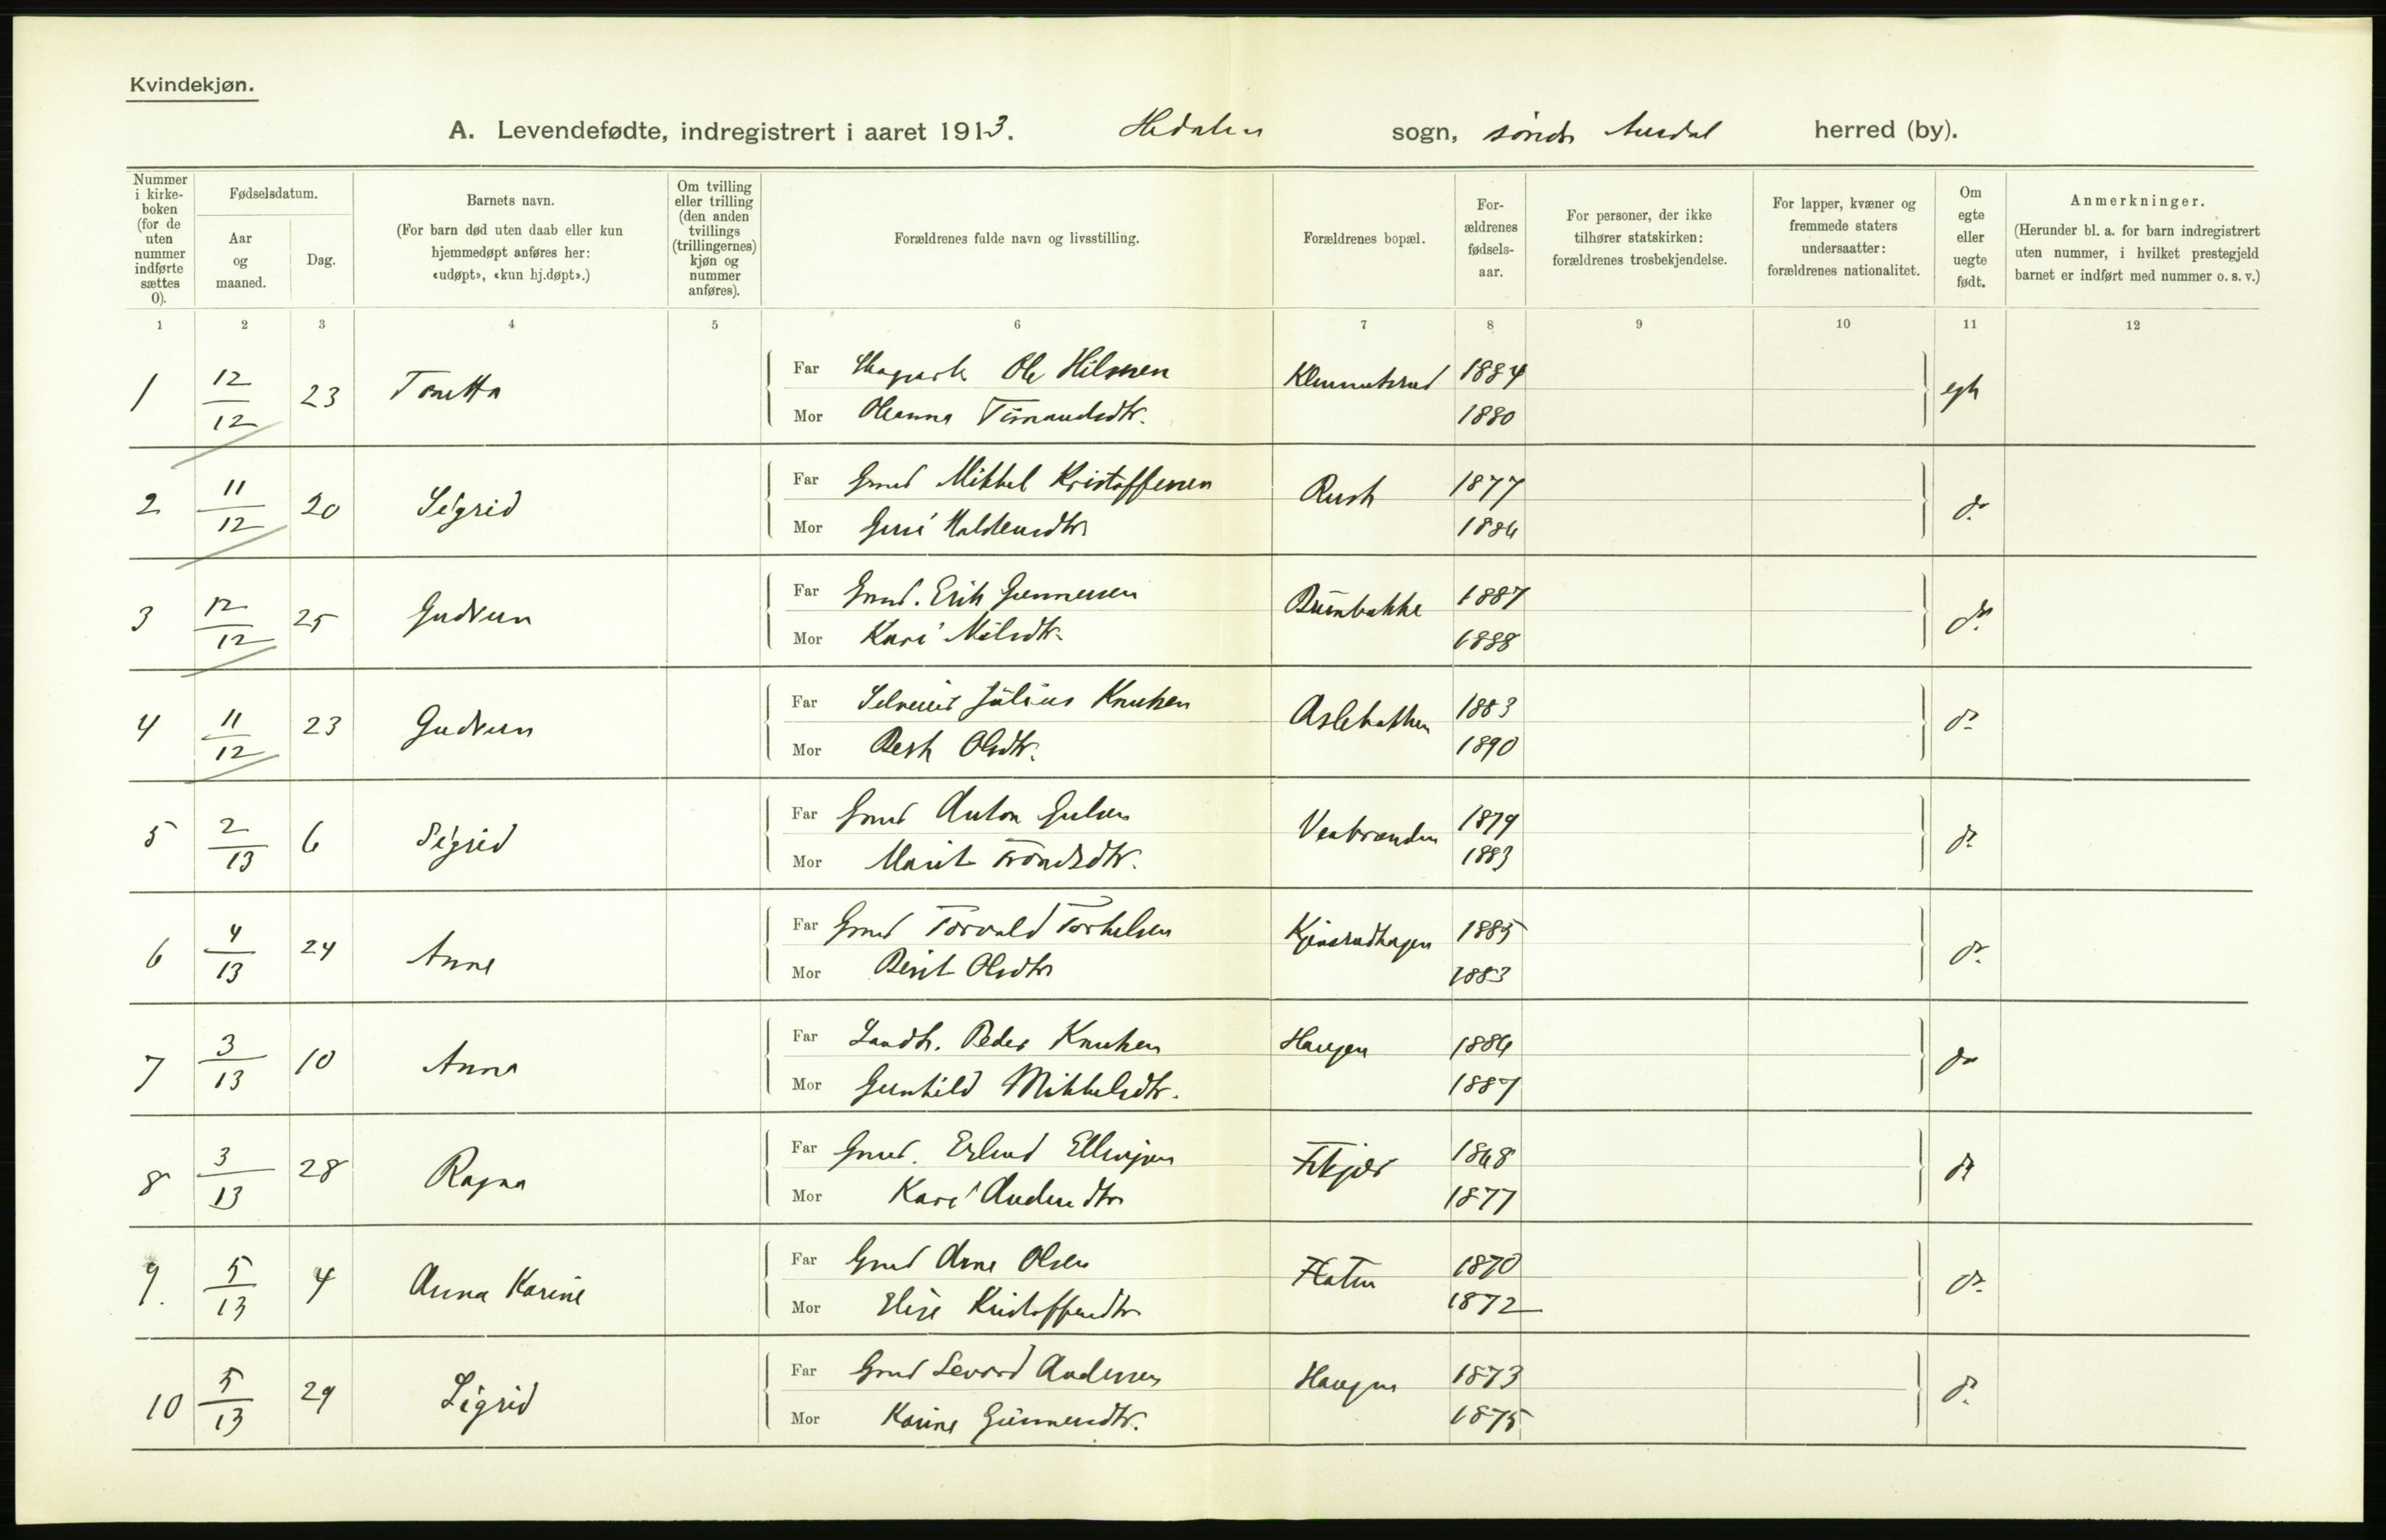 Kvindekjøn.
A. Levendefødte, indregistrert i aaret 1913. Hedalen sogn, søndr Aurdal herred (by).
Nummer i kirke-boken (for de uten nummer indførte sættes 0).
Fødselsdatum.
Aar og maaned.
Dag.
Barnets navn.
(For barn død uten daab eller kun hjemmedøpt anføres her: «udøpt», «kun hj.døpt».)
Om tvilling eller trilling (den anden tvillings (trillingernes) kjøn og nummer anføres).
Forældrenes fulde navn og livsstilling.
Forældrenes bopæl.
For-ældrenes fødsels-aar.
For personer, der ikke tilhører statskirken: forældrenes trosbekjendelse.
For lapper, kvæner og fremmede staters undersaatter: forældrenes nationalitet.
Om egte eller uegte født.
Anmerkninger.
(Herunder bl. a. for barn indregistrert uten nummer, i hvilket prestegjeld barnet er indført med nummer o. s. v.)
1 2 3 4 5 6 7 8 9 10 11 12
1 12/12 23 Tonetta Far Ole Hilmsen 1884 egte
Mor Oleanna 1880
2 11/12 20 Sigrid Far Grmd Mikkel Kristoffersen Rust 1877 do
Mor Guri Halstensdtr 1886
3 12/12 25 Gudrun Far Grmd. Erik Gunnersen Brunbakke 1887 do
Mor Kari Nilsdtr. 1888
4 11/12 23 Gudrun Far Selveier Julius Knutsen Aslebakken 1883 do
Mor Berit Olsdtr. 1890
5 2/13 6 Sigrid Far Grmd Anton Gulsen 1879 do
Mor Marit Trondsdtr. 1883
6 4/13 24 Anne Far Grmd Torvald Torkelsen 1885 do
Mor Berit Olsdtr 1883
7 3/13 10 Anna Far Landh. Peder Knutsen Haugen 1886 do
Mor Gunhild Mikkelsdtr. 1887
8 3/13 28 Ragna Far Grmd. Erlend Ellingsen 1868 do
Mor Kari Andersdtr 1877
9. 5/13 4 Anna Karine Far Grmd Arne Olsen Flaten 1870 do
Mor Elise Kristoffersdtr 1872
10 5/13 29 Sigrid Far Grmd Sevard Andersen Haugen 1873 do
Mor Karine Gunnersdtr. 1875